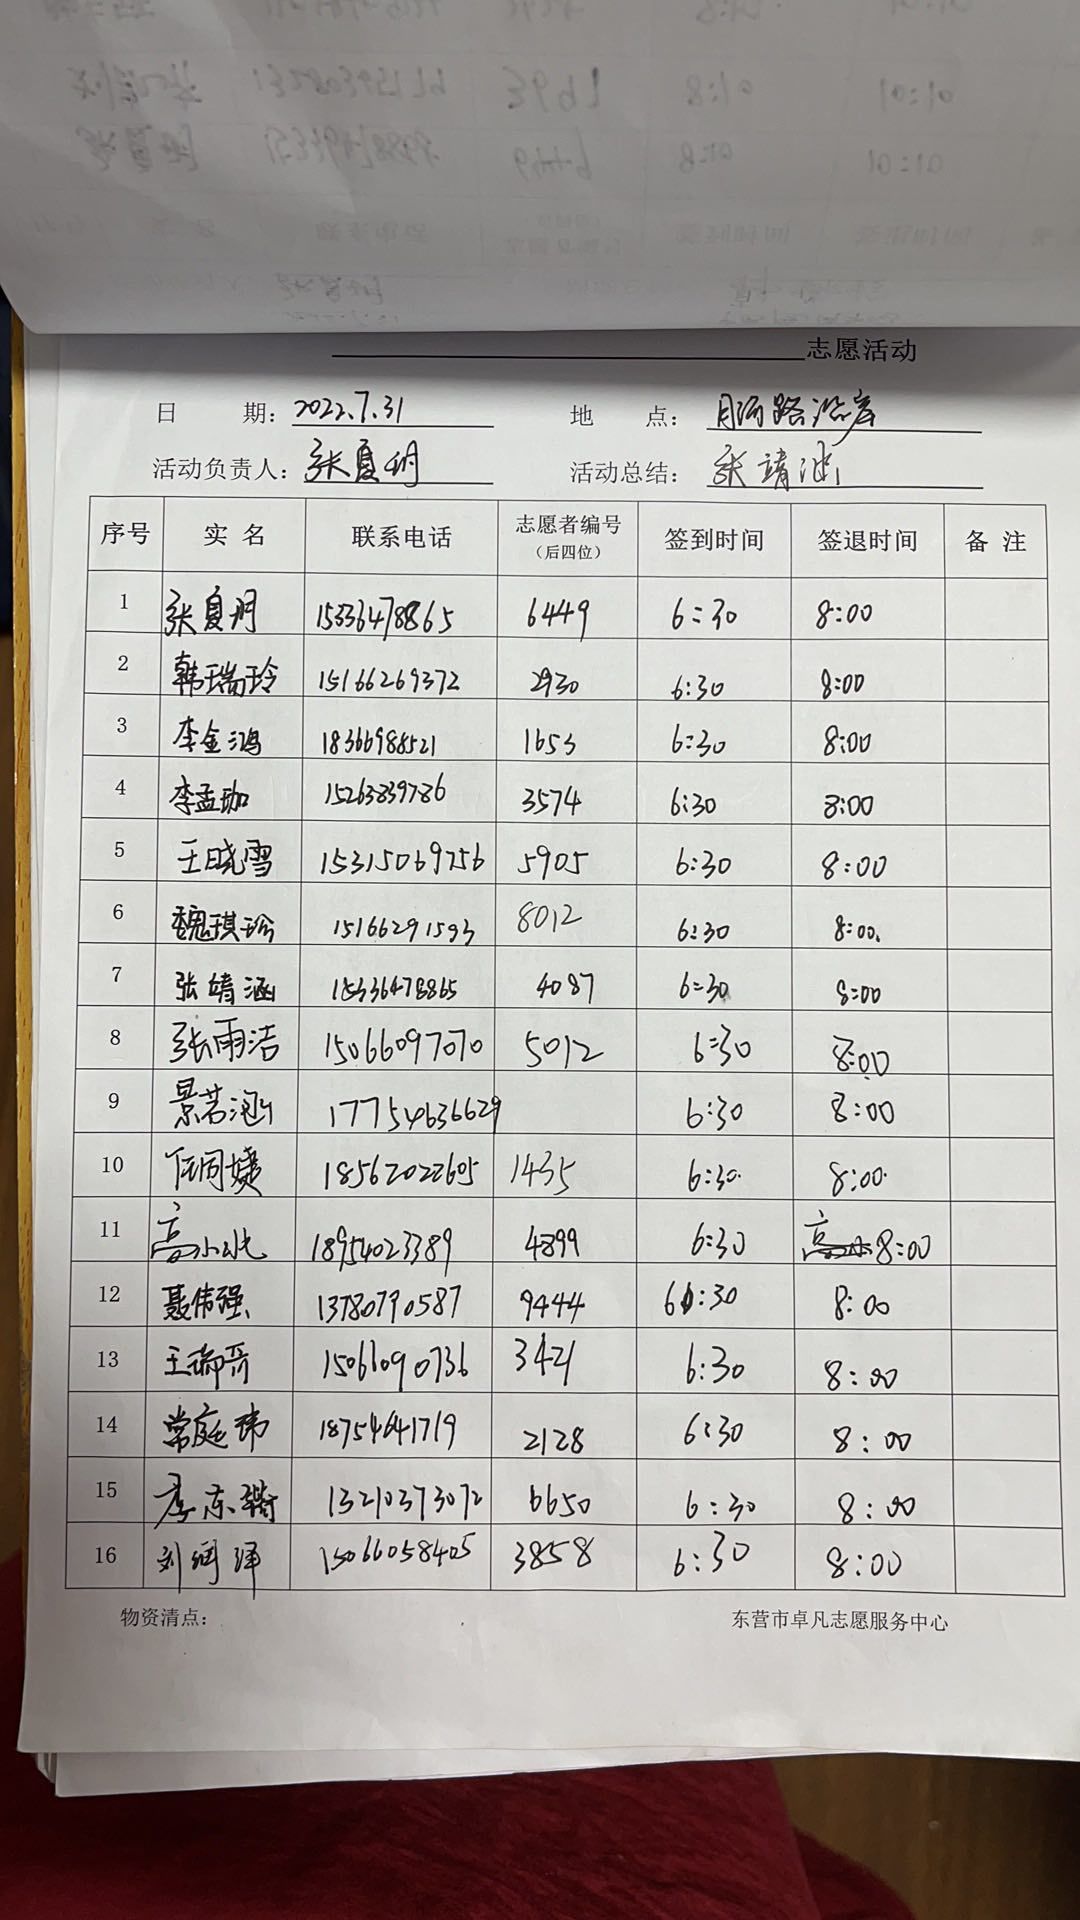 志愿活动
日 期: 2022.7.31 地 点: 月河路沿岸
活动负责人: 张夏玥 活动总结: 张靖涵
序号 实名 联系电话 志愿者编号(后四位) 签到时间 签退时间 备注
1 张夏玥 15336478865 6449 6:30 8:00
2 韩瑞玲 15166269372 2930 6:30 8:00
3 李金鸿 18366988521 1653 6:30 8:00
4 李孟珈 15263839786 3574 6:30 8:00
5 王晓雪 15315069756 5905 6:30 8:00
6 魏琪珍 15166291593 8012 6:30 8:00
7 张靖涵 15336478865 4087 6:30 8:00
8 张雨洁 15066097070 5012 6:30 8:00
9 景若涵 17754636629 6:30 8:00
10 任同婕 18562022605 1435 6:30 8:00
11 高小屹 18954023389 4899 6:30 8:00
12 聂伟强 13780790587 9444 6:30 8:00
13 王瑞晋 15066090736 3421 6:30 8:00
14 常庭玮 18754641719 2128 6:30 8:00
15 李东 13210373072 6650 6:30 8:00
16 刘润泽 15066058405 3858 6:30 8:00
物资清点: 东营市卓凡志愿服务中心